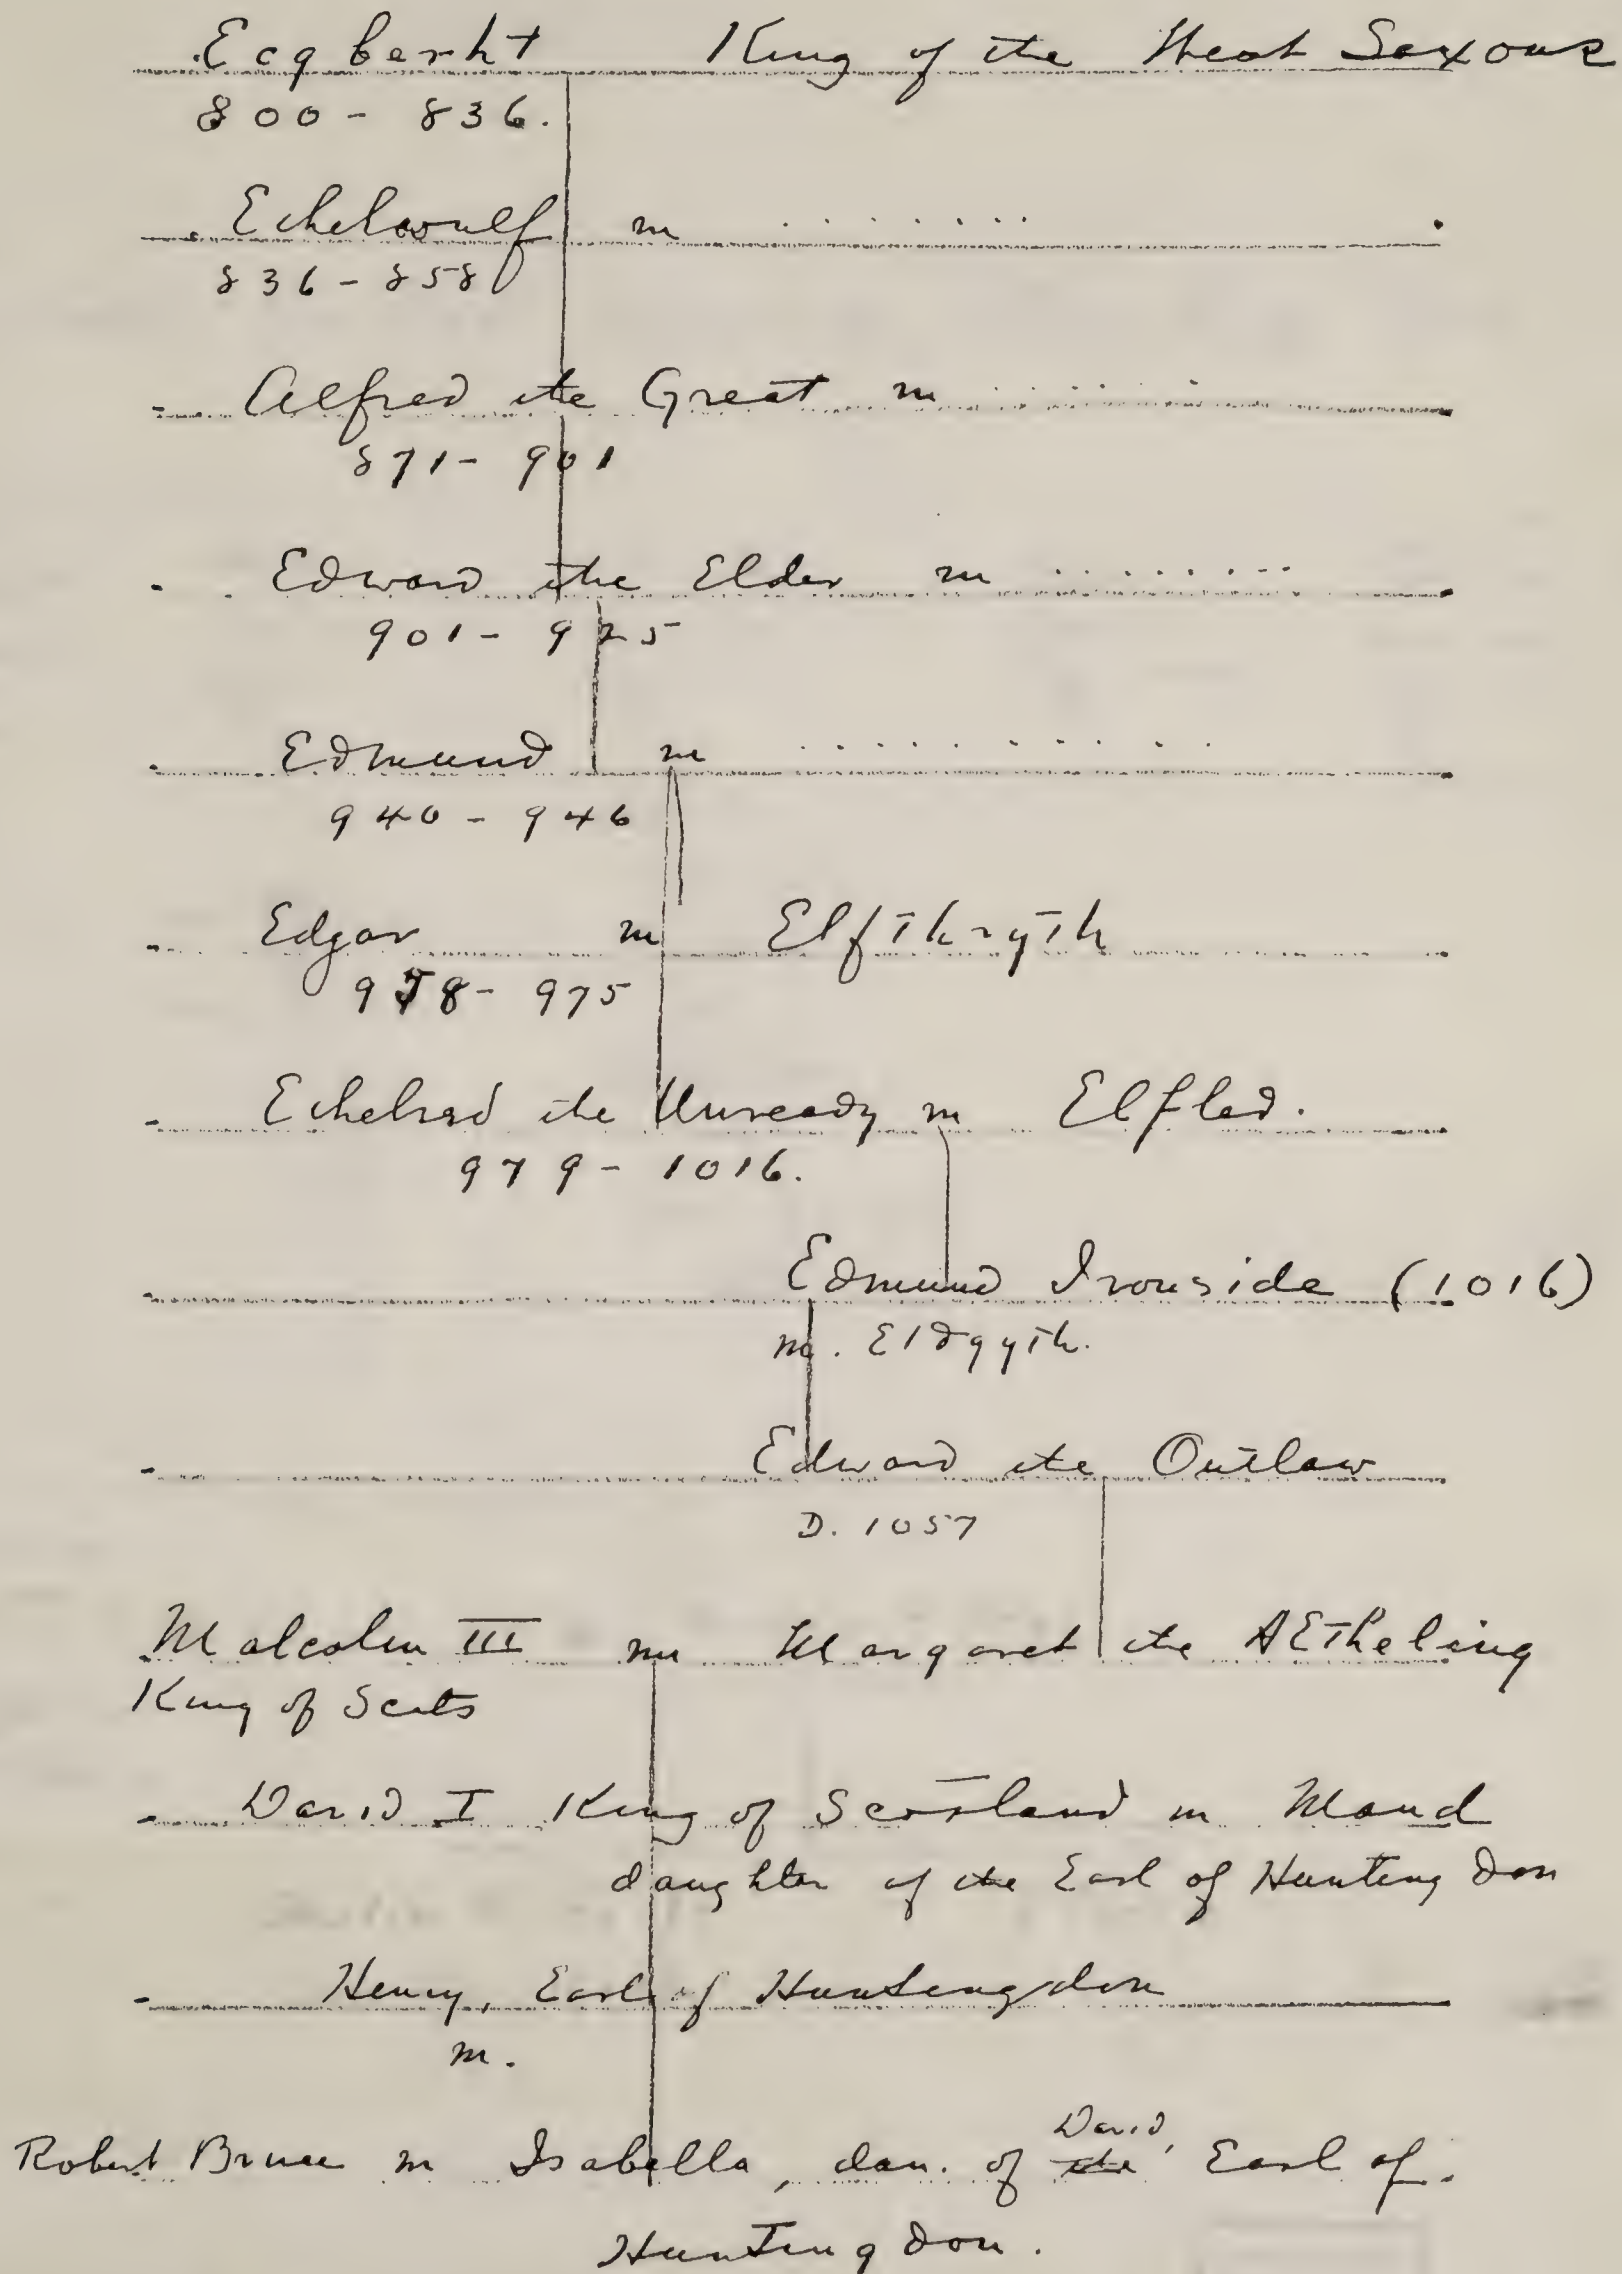 Ecgberht King of the West Saxons
800 - 836.
Ethelwulf m . . . . . . . . .
836 - 858
Alfred the Great m . . . . . . . .
871 - 901
Edward the Elder m . . . . . . . . .
901 - 925
Edmund m . . . . . . . . . . .
940 - 946
Edgar m Elfthryth
958 - 975
Ethelred the Unready m Elfled.
979 - 1016.
Edmund Ironside (1016)
m. Eldgyth.
Edward the Outlaw
D. 1057
Malcolm III m Margaret the AEtheling
King of Scots
David I King of Scotland m Maud
daughter of the Earl of Huntingdon
Henry, Earl of Huntingdon
m.
David,
Robert Bruce m Isabella, dau. of the Earl of
Huntingdon.